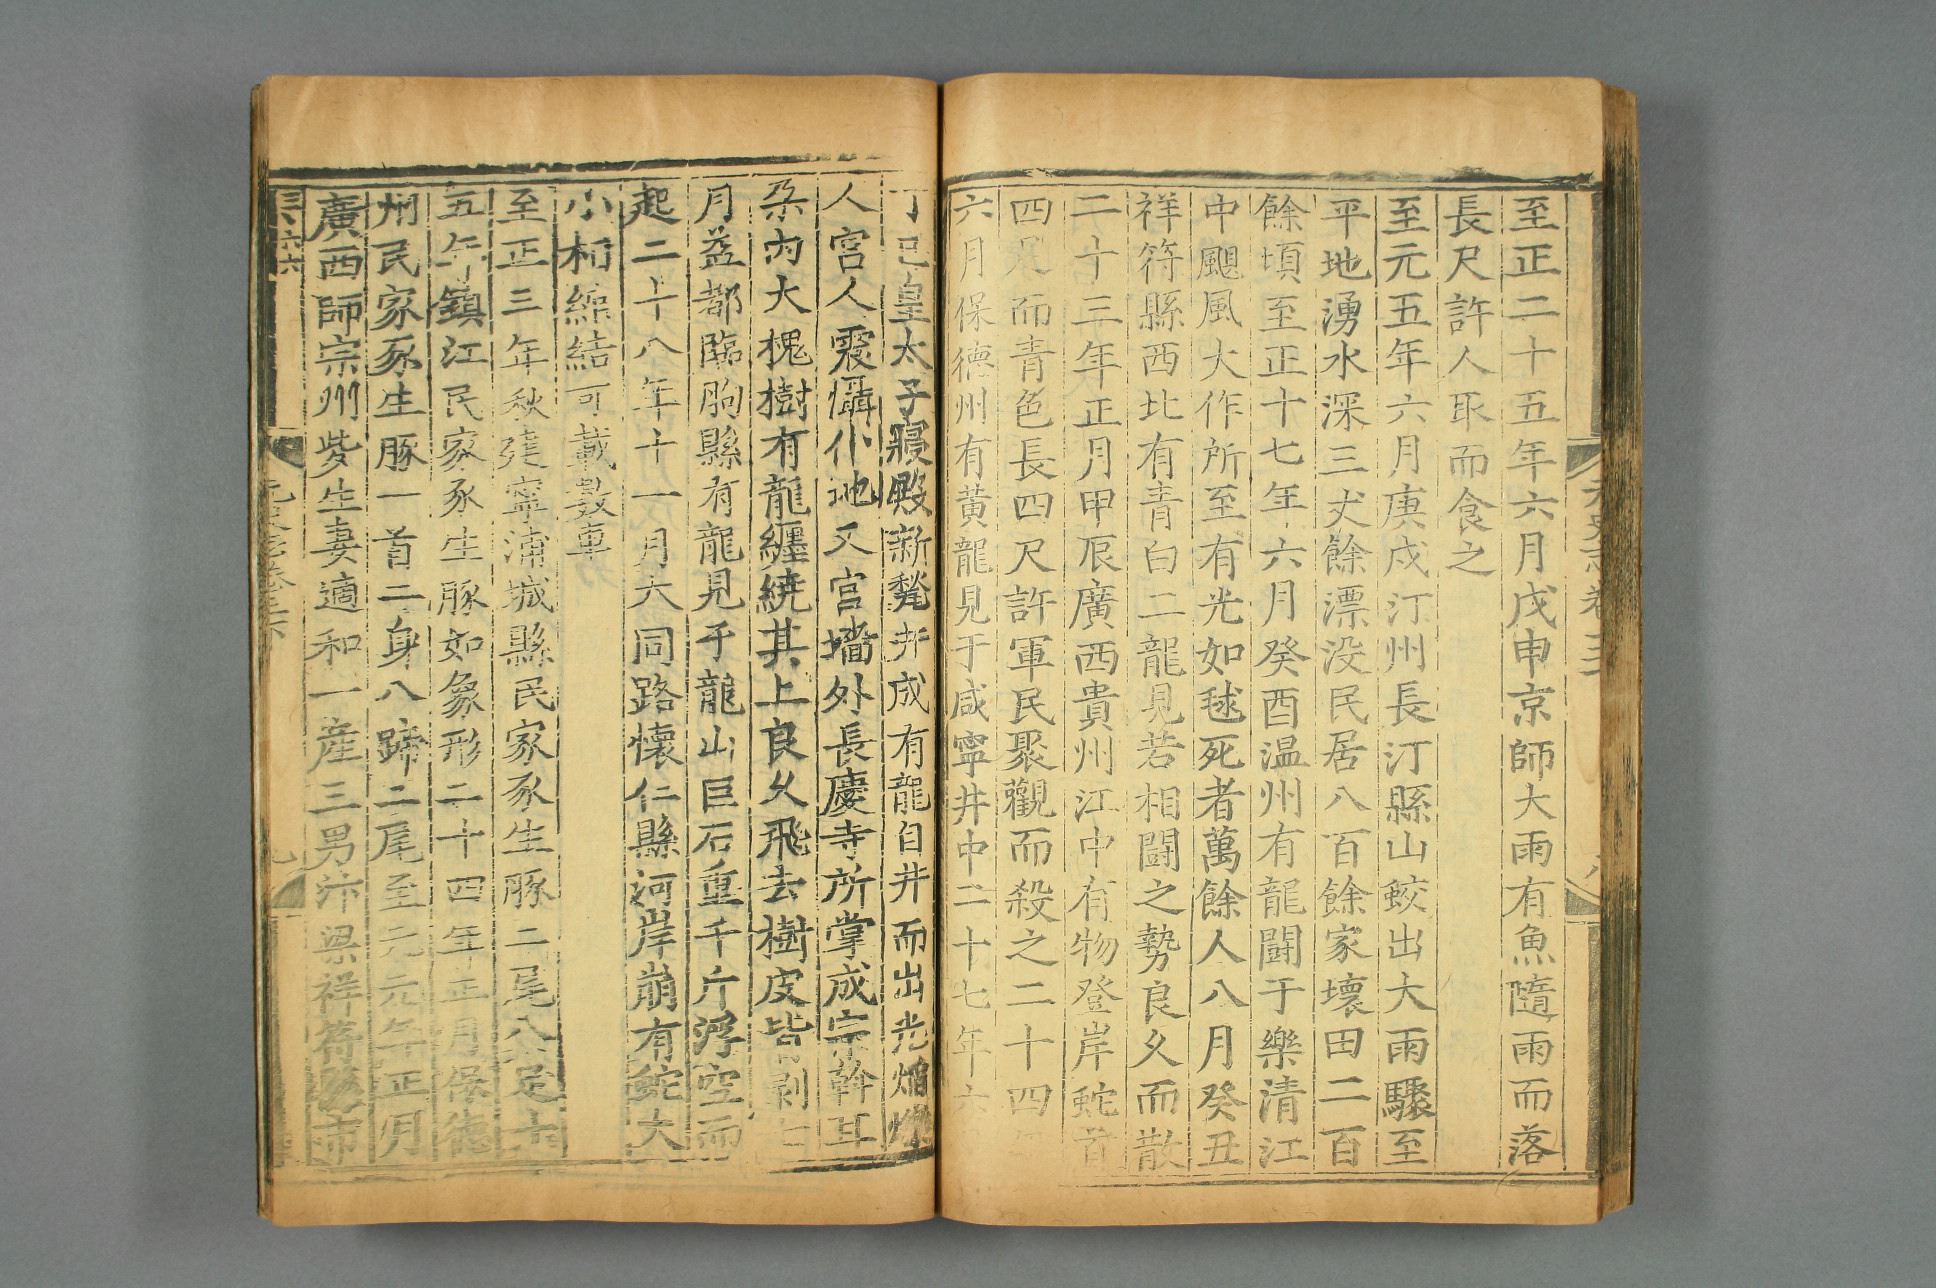 至正二十五年六月戊申京師大雨有魚隨雨而落
長尺許人取而食之
至元五年六月庚戌汀州長汀縣山蛟出大雨驟至
平地湧水深三丈餘漂没民居八百餘家壞田二百
餘頃至正十七年六月癸酉温州有龍闘于樂清江
中颶風大作所至有光如毬死者萬餘人八月癸丑
祥符縣西北有青白二龍見若相闘之勢良久而散
二十三年正月甲辰廣西貴州江中有物登岸蛇首
四足而青色長四尺許軍民聚觀而殺之二十四年
六月保德州有黄龍見于咸寧井中二十七年六
丁巳皇太子寢殿新甃井成有龍自井而出光焰爍
人宮人震懾仆地又宮墻外長慶寺所掌成宗斡耳
朶内大槐樹有龍纏繞其上良久飛去樹皮皆剥七
月益都臨朐縣有龍見于龍山巨石重千斤浮空而
起二十八年十一月大同路懷仁縣河岸崩有蛇大
小相綰結可載數車
至正三年秋建寧浦城縣民家豕生豚二尾八足十
五年鎮江民家豕生豚如象形二十四年正月保德
州民家豕生豚一首二身八蹄二尾至元元年正月
廣西師宗州㱔生妻適和一産三男汴梁祥符縣市
元史志卷三下